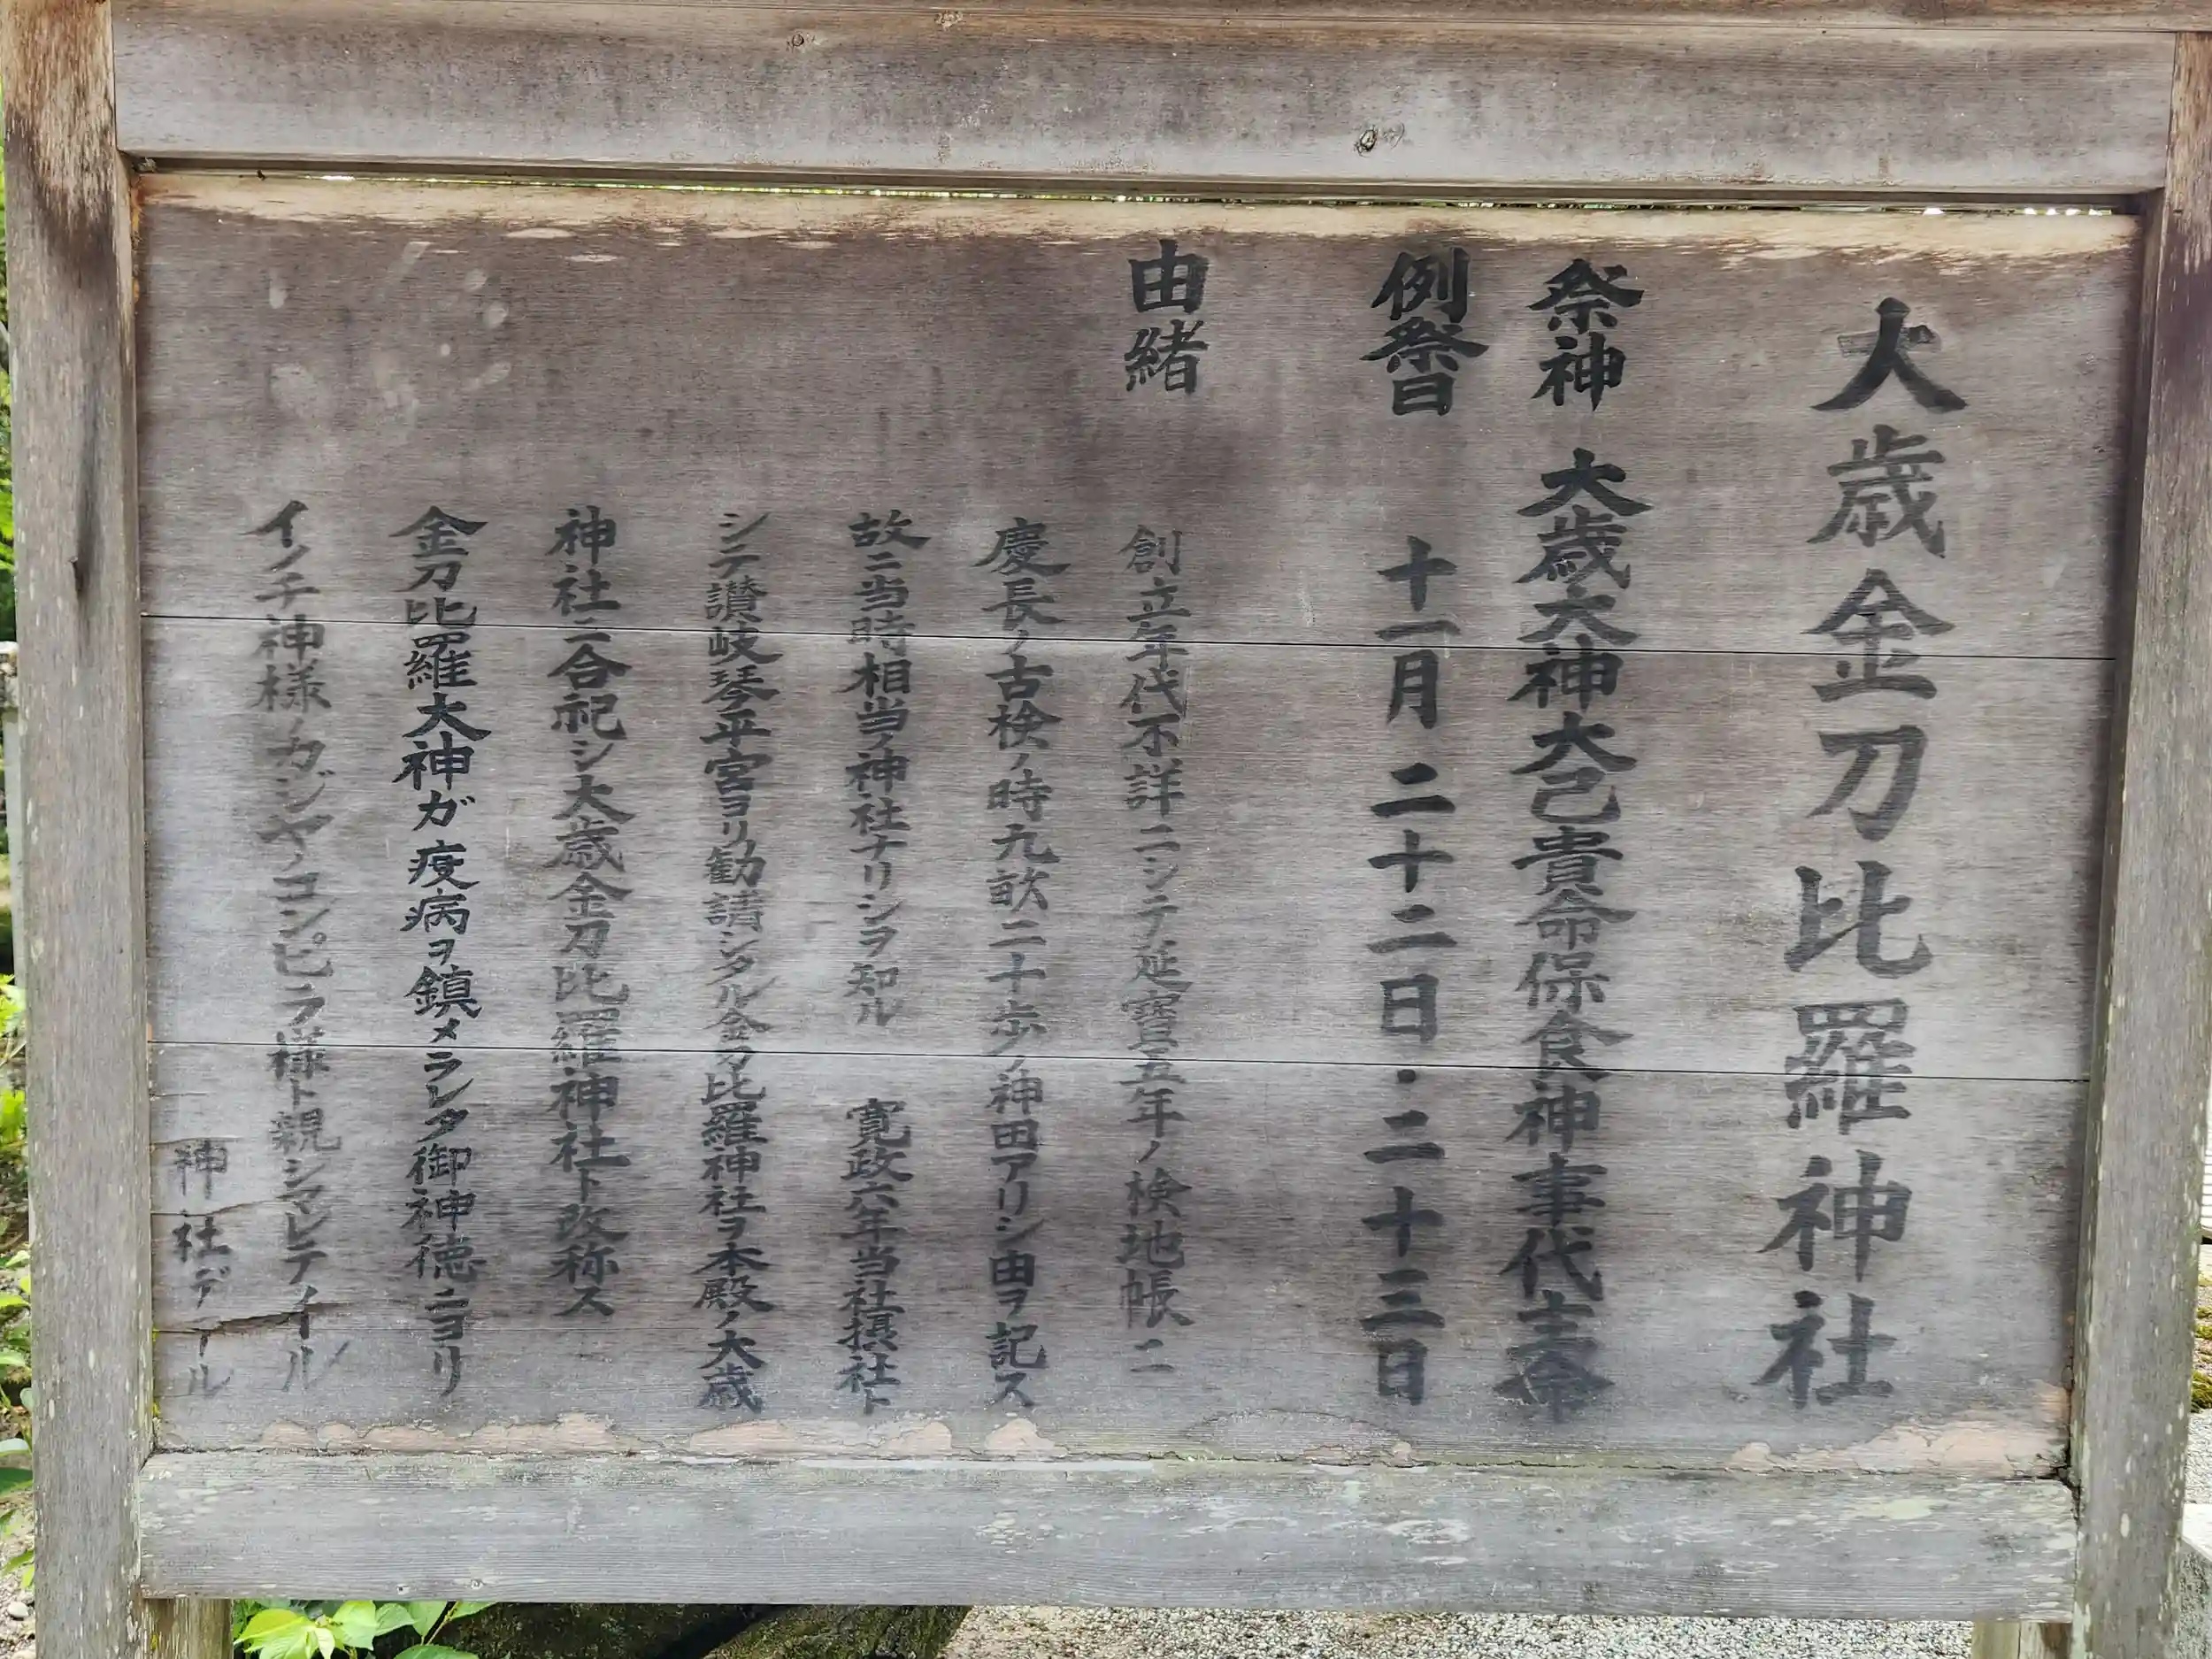 大歳金刀比羅神社
祭神 大歳大神大己貴命保食神事代主命
例祭日 十一月二十二日・二十三日
由緒
創立年代不詳ニシテ延寶五年ノ検地帳ニ
慶長ノ古検ノ時九畝二十歩ノ神田アリシ由ヲ記ス
故ニ当時相当ノ神社ナリシヲ知ル 寛政六年当社摂社ト
シテ讃岐琴平宮ヨリ勧請シタル金刀比羅神社ヲ本殿ノ大歳
神社ニ合祀シ大歳金刀比羅神社ト改称ス
金刀比羅大神ガ疫病ヲ鎮メラレタ御神徳ニヨリ
イノチ神様ノカジヤノコンピラ様ト親シマレテイル
神社デール